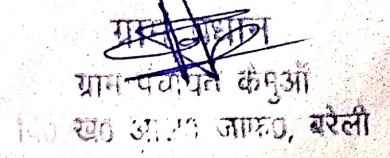 ग्राम प्रधान
ग्राम पंचायत कैनुआँ
वि० ख० आ... जाफ०, बरेली